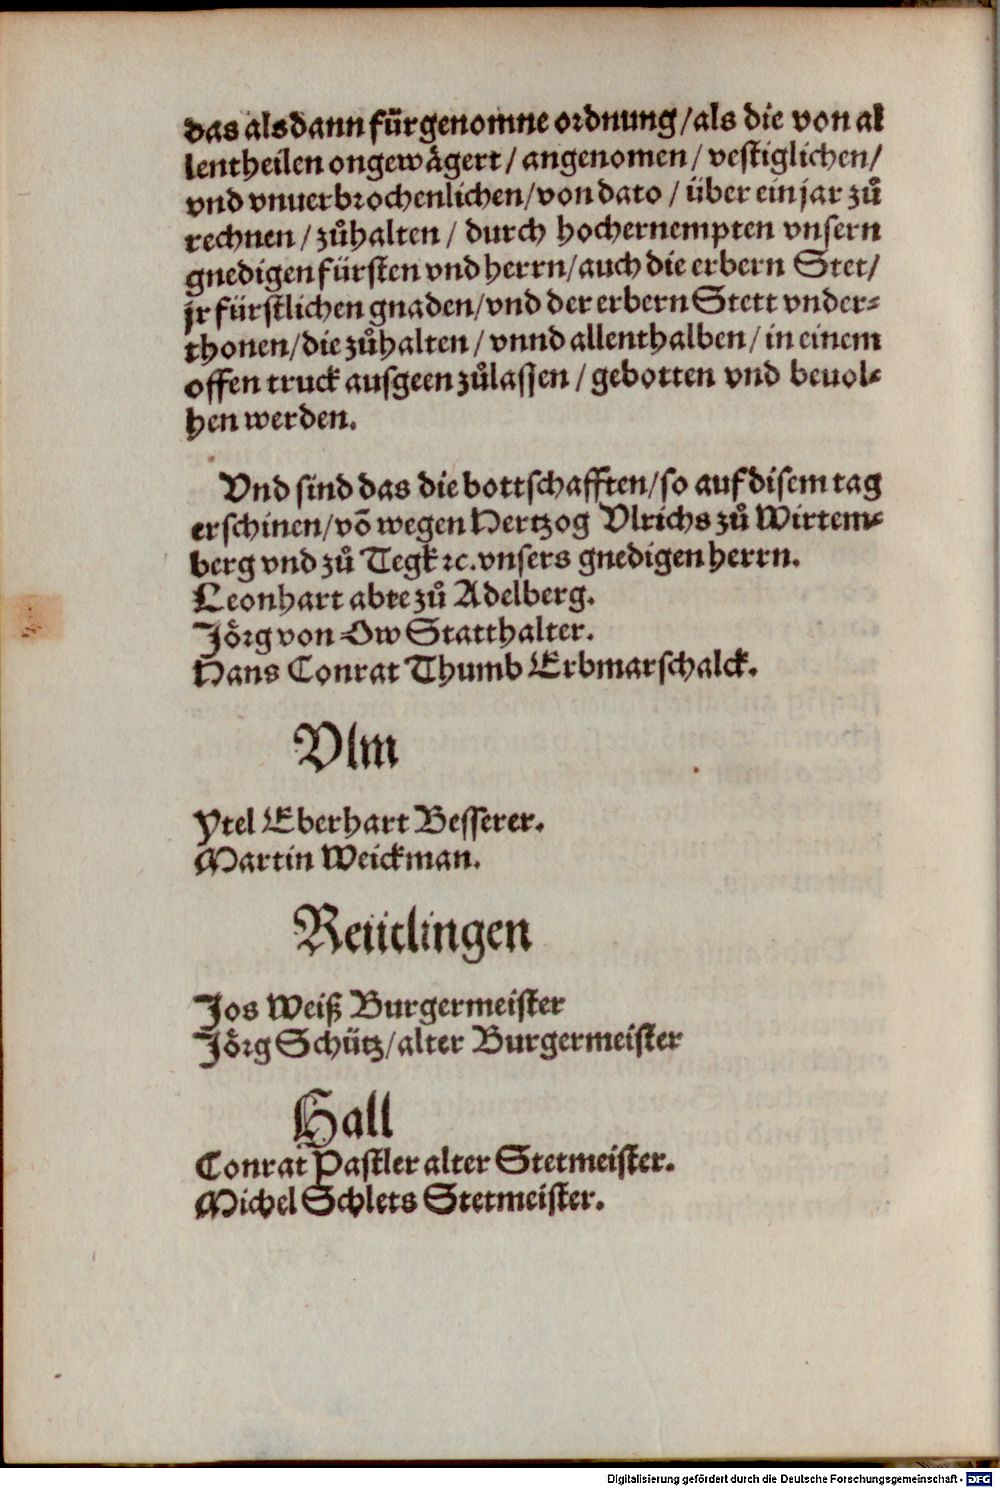 das als dann fürgenomne ordnung/als die von al
lentheilen ongewägert/ angenomen/ vestiglichen/
vnd vnuerbrochenlichen/von dato / über ein jar zů
rechnen / zůhalten / durch hochernempten vnsern
gnedigen fürsten vnd herrn/auch die erbern Stet/
jr fürstlichen gnaden/vnd der erbern Stett vnder⸗
thonen/die zůhalten / vnnd allenthalben/ in einem
offen truck ausgeen zůlassen / gebotten vnd beuol⸗
hen werden.
Vnd sind das die bottschafften/so auf disem tag
erschinen/võ wegen Hertzog Vlrichs zů Wirtem⸗
berg vnd zů Tegk ꝛc. vnsers gnedigen herrn.
Leonhart abte zů Adelberg.
Jörg von Ow Statthalter.
Hans Conrat Thumb Erbmarschalck.
Vlm
Ytel Eberhart Besserer.
Martin Weickman.
Reütlingen
Jos Weiß Burgermeister
Jörg Schütz/alter Burgermeister
Hall
Conrat Pastler alter Stetmeister.
Michel Schlets Stetmeister.
Digitalisierung gefördert durch die Deutsche Forschungsgemeinschaft - DFG